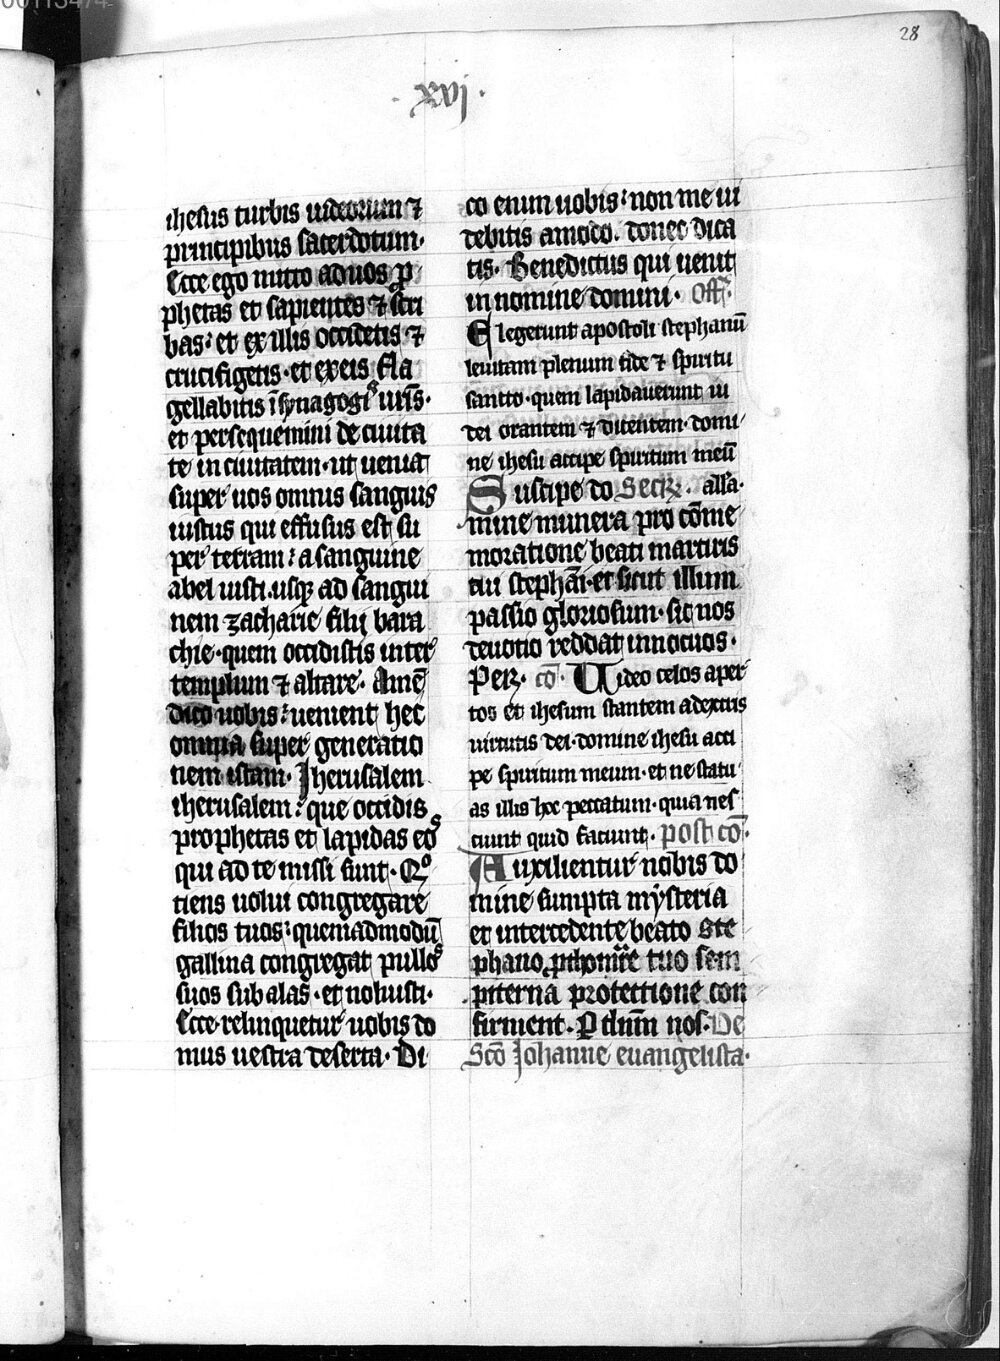 00113474
28
· xvi ·
ihesus turbis iudeorum ⁊
principibus sacerdotum·
Ecce ego mitto ad uos p̄
phetas et sapientes ⁊ scri
bas: et ex illis occidetis ⁊
crucifigetis· et ex eis fla
gellabitis ī synagogis ur̄is·
et persequemini de ciuita
te in ciuitatem· ut ueniat
super uos omnis sanguis
iustus qui effusus est su
per terram: a sanguine
abel iusti· usqȝ ad sangui
nem zacharie filij bara
chie· quem occidistis inter
templum ⁊ altare· Amē
dico uobis: uenient hec
omnia super generatio
nem istam· Iherusalem
iherusalem: que occidis
prophetas et lapidas eos
qui ad te missi sunt· Qo
tiens uolui congregare
filios tuos: quemadmodū
gallina congregat pullos
suos sub alas· et noluisti·
Ecce relinquetur uobis do
mus uestra deserta· Di
co enim uobis: non me ui
debitis amodo· donec dica
tis· Benedictus qui uenit
in nomine domini· Off̄·
Elegerunt apostoli stephanū
leuitam plenum fide ⁊ spiritu
sancto· quem lapidauerunt iu
dei orantem ⁊ dicentem· domi
ne ihesu accipe spiritum meū
Suscipe do Secrȝ· all'a·
mine munera pro cōme
moratione beati martiris
tui stephāi· et sicut illum
passio gloriosum· sic nos
deuotio reddat innocuos·
Per· cō· Uideo celos aper
tos et ihesum stantem a dextris
uirtutis dei· domine ihesu acci
pe spiritum meum· et ne statu
as illis hoc peccatum· quia nes
ciunt quid faciunt· post cō·
Auxilientur nobis do
mine sumpta mysteria
et intercedente beato ste
phano tuo sem
piterna protectione con
firment· P dn̄m nos· De
Sc̄o Johanne euangelista·